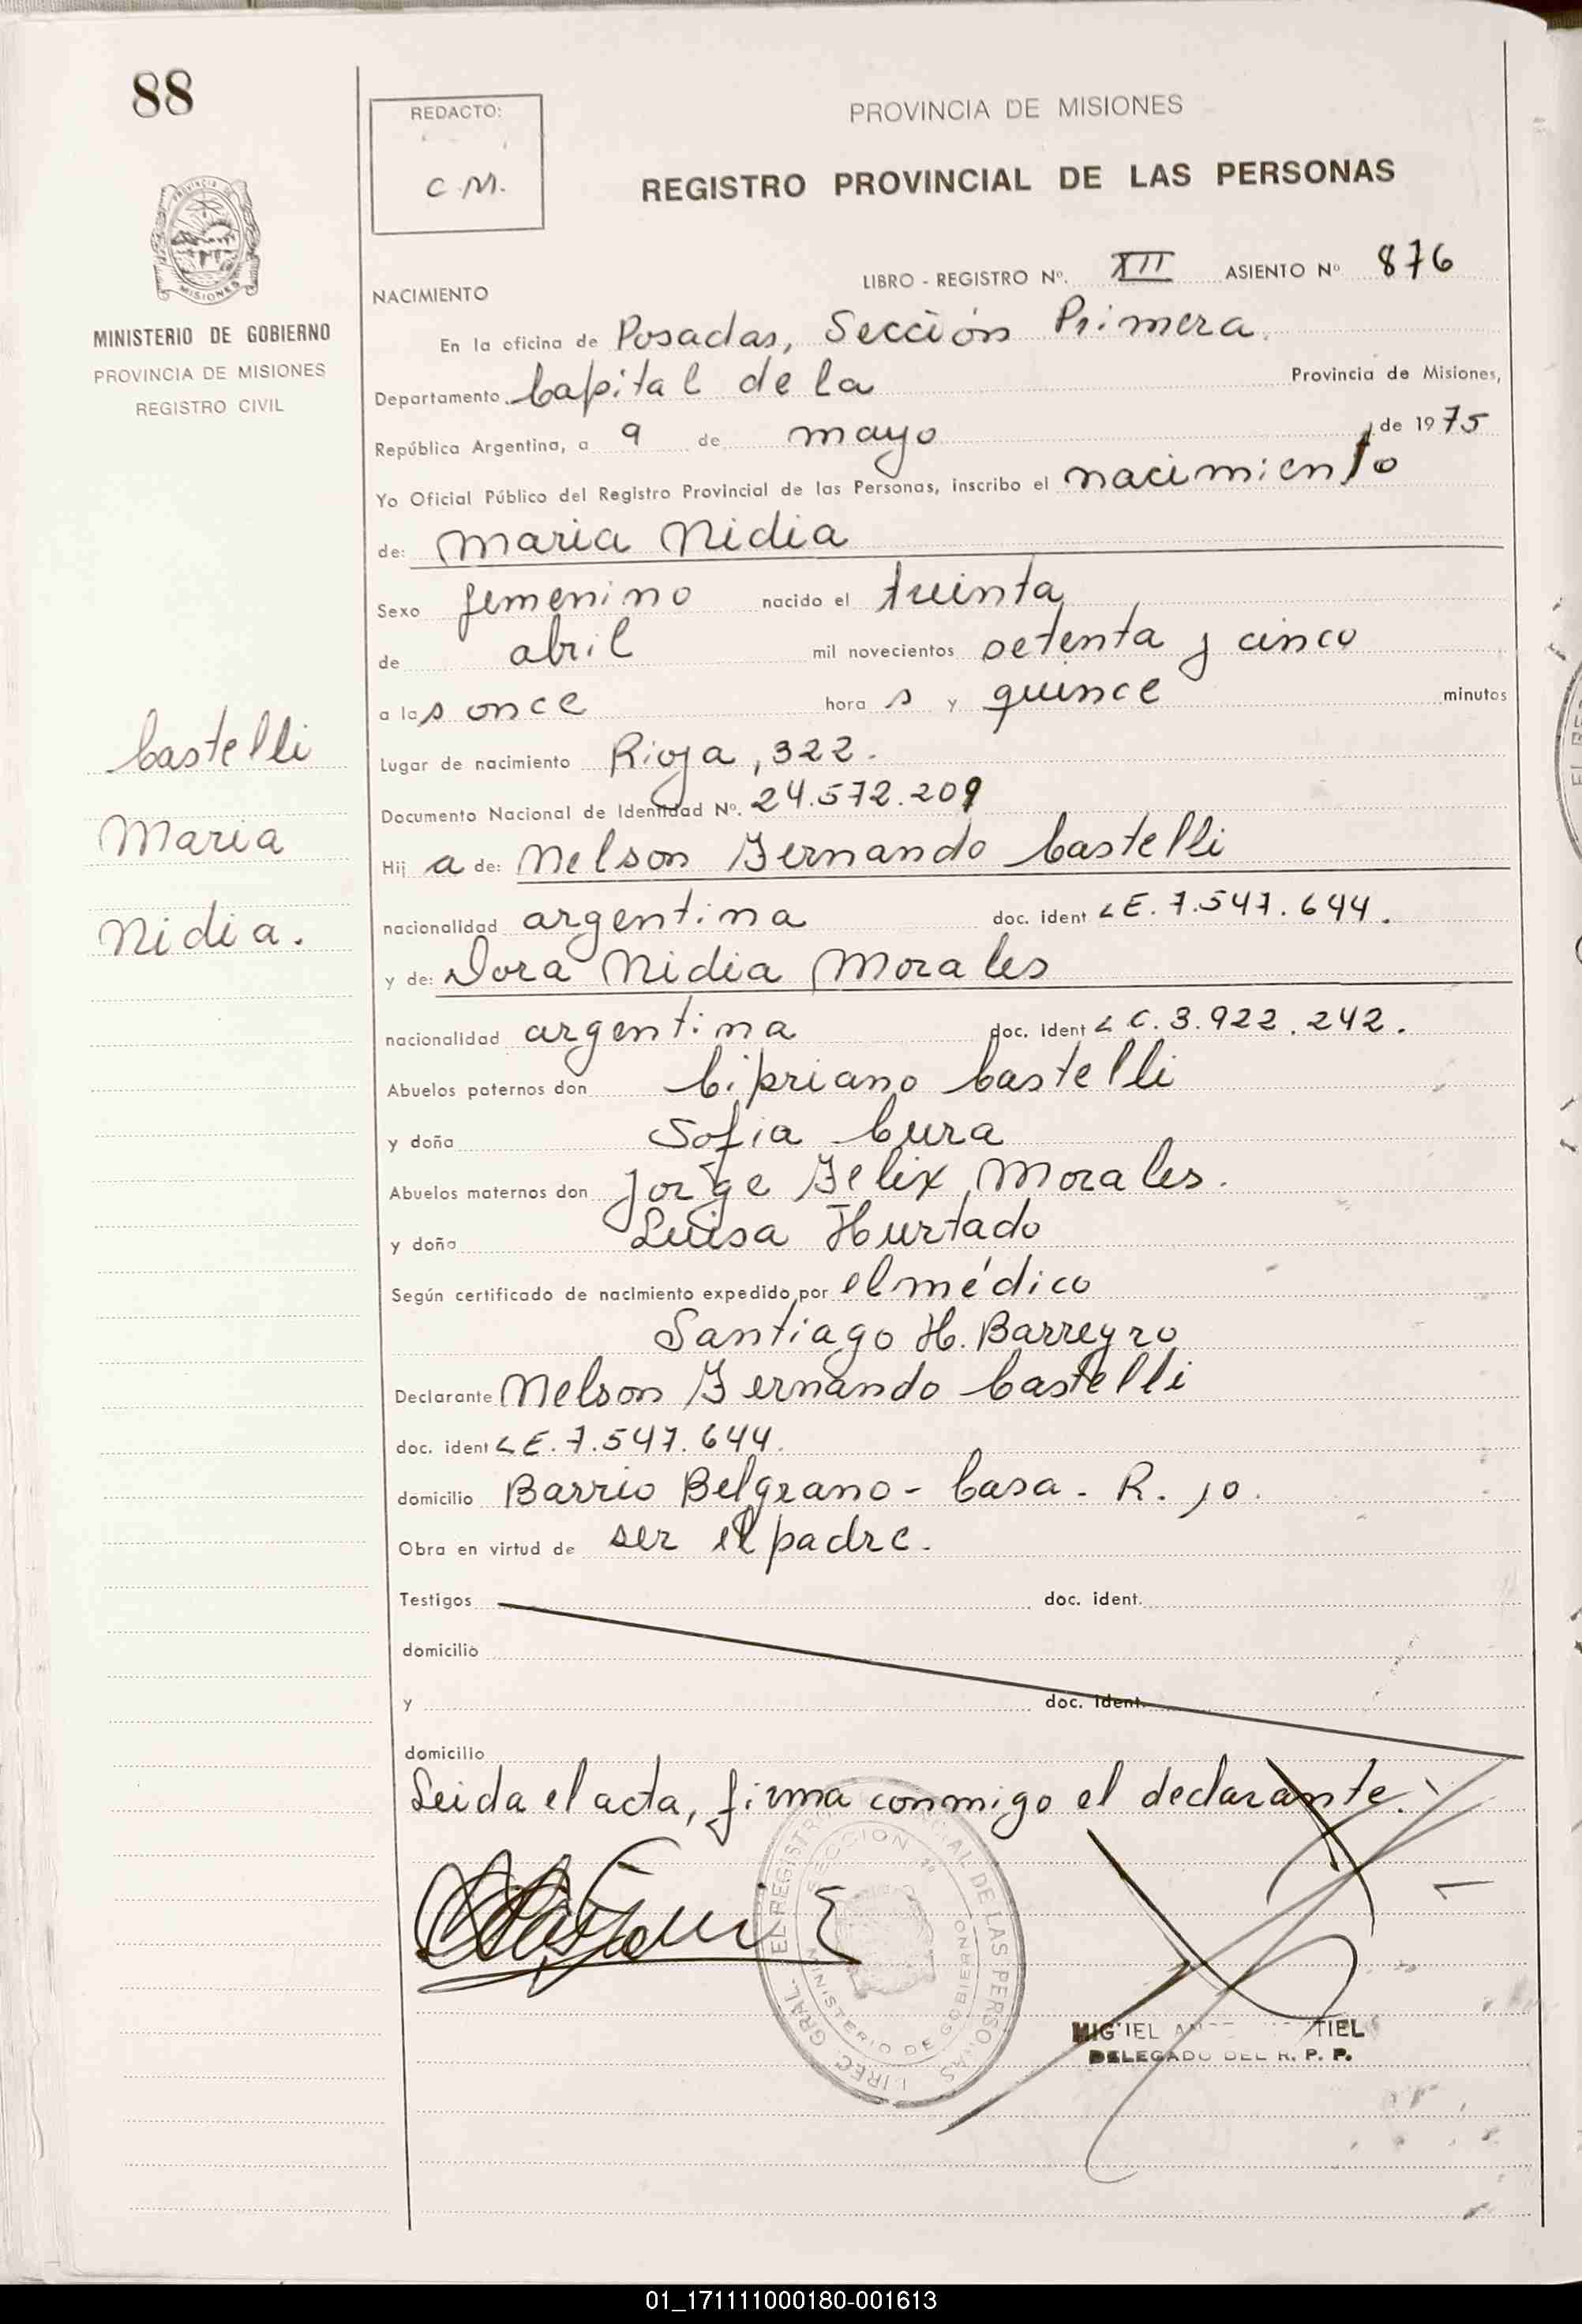 88
REDACTO:
C.M.
PROVINCIA DE MISIONES
REGISTRO PROVINCIAL DE LAS PERSONAS
MISIONES
MINISTERIO DE GOBIERNO
PROVINCIA DE MISIONES
REGISTRO CIVIL
LIBRO - REGISTRO Nº. XII ASIENTO Nº 876
NACIMIENTO
En la oficina de Posadas, Sección Primera.
Departamento Capital de la Provincia de Misiones,
República Argentina, a 9 de mayo de 1975
Yo Oficial Público del Registro Provincial de las Personas, inscribo el nacimiento
de: Maria Nidia
Sexo femenino nacido el treinta
de abril mil novecientos setenta y cinco
a las once horas y quince minutos
Lugar de nacimiento Rioja, 322.
Documento Nacional de Identidad Nº. 24.572.209
Hija de: Nelson Fernando Castelli
nacionalidad argentina doc. ident LE. 7.547.644.
y de: Dora Nidia Morales
nacionalidad argentina doc. ident L C. 3.922.242.
Abuelos paternos don Cipriano Castelli
y doña Sofia Cura
Abuelos maternos don Jorge Felix Morales.
y doña Luisa Hurtado
Según certificado de nacimiento expedido por el médico
Santiago H. Barreyro
Declarante Nelson Fernando Castelli
doc. ident LE. 7.547.644.
domicilio Barrio Belgrano - Casa - R. 10.
Obra en virtud de ser el padre.
Testigos doc. ident.
domicilio
y doc. ident.
domicilio
Leida el acta, firma conmigo el declarante.
Castelli
Maria
Nidia.
SECCION 1ª
MINISTERIO DE GOBIERNO
DELEGADO DEL R. P. P.
01_171111000180-001613